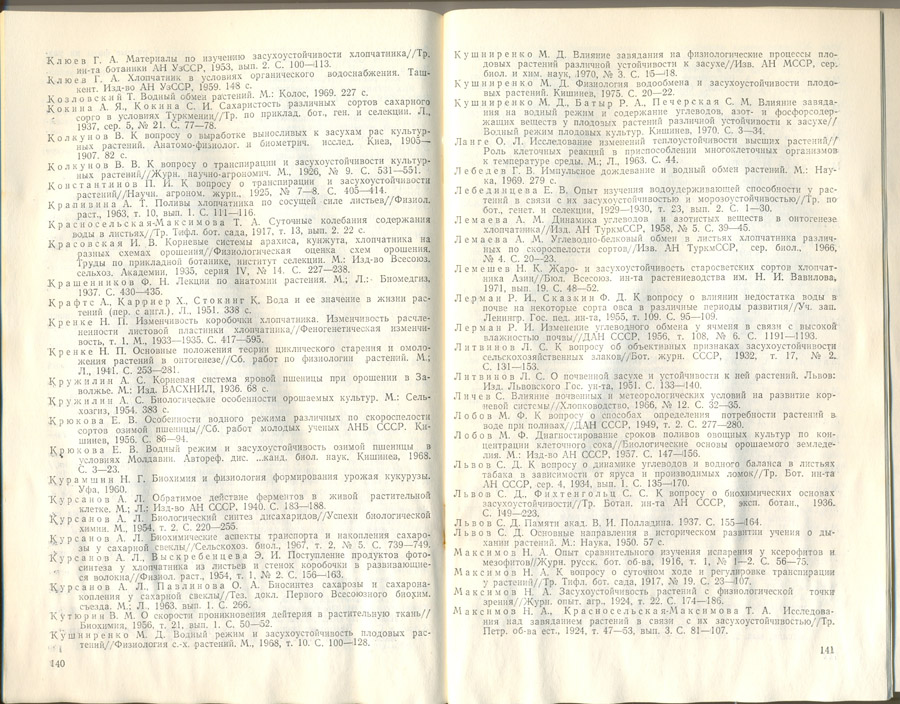 Клюев Г. А. Материалы по изучению засухоустойчивости хлопчатника//Тр.
ин-та ботаники АН УзССР, 1953, вып. 2. С. 100—113.
Клюев Г. А. Хлопчатник в условиях органического водоснабжения. Таш-
кент. Изд-во АН УзССР, 1959. 148 с.
Козловский Т. Водный обмен растений. М.: Колос, 1969. 227 с.
Кокина А. Я., Кокина С. И. Сахаристость различных сортов сахарного
сорго в условиях Туркмении//Тр. по приклад. бот., ген. и селекции. Л.,
1937, сер. 5, № 21. С. 77—78.
Колкунов В. К вопросу о выработке выносливых к засухам рас культур-
ных растений. Анатомо-физиолог. и биометрич. исслед. Киев, 1905—
1907. 82 с.
Колкунов В. В. К вопросу о транспирации и засухоустойчивости культур-
ных растений//Журн. научно-агрономич. М., 1926, № 9. С. 531—551.
Константинов П. И. К вопросу о транспирации и засухоустойчивости
растений//Научн. агроном. журн., 1925, № 7—8. С. 405—414.
Крапивина А. Т. Поливы хлопчатника по сосущей силе листьев//Физиол.
раст., 1963, т. 10, вып. 1. С. 111—116.
Красносельская-Максимова Т. А. Суточные колебания содержания
воды в листьях//Тр. Тифл. бот. сада, 1917, т. 13, вып. 2. 22 с.
Красовская И. В. Корневые системы арахиса, кунжута, хлопчатника на
разных схемах орошения//Физиологическая оценка схем орошения.
Труды по прикладной ботанике, институт селекции. М.: Изд-во Всесоюз.
сельхоз. Академии, 1935, серия IV, № 14. С. 227—238.
Крашенников Ф. Н. Лекции по анатомии растений. М.; Л.: Биомедгиз,
1937. С. 430—435.
Крафтс А., Карриер Х., Стокинг К. Вода и ее значение в жизни рас-
тений (пер. с англ.). Л., 1951. 338 с.
Кренке Н. П. Изменчивость коробочки хлопчатника. Изменчивость расчле-
ненности листовой пластинки хлопчатника//Феногенетическая изменчи-
вость, т. 1, М., 1933—1935. С. 417—595.
Кренке Н. П. Основные положения теории циклического старения и омоло-
жения растений в онтогенезе//Сб. работ по физиологии растений. М.;
Л., 1941. С. 253—281.
Кружилин А. С. Корневая система яровой пшеницы при орошении в За-
волжье. М.: Изд. ВАСХНИЛ, 1936. 68 с.
Кружилин А. С. Биологические особенности орошаемых культур. М.: Сель-
хозгиз, 1954. 383 с.
Крюкова Е. В. Особенности водного режима различных по скороспелости
сортов озимой пшеницы//Сб. работ молодых ученых АНБ СССР. Ки-
шинев, 1956. С. 86—94.
Крюкова Е. В. Водный режим и засухоустойчивость озимой пшеницы в
условиях Молдавии. Автореф. дис. ...канд. биол. наук, Кишинев, 1968.
С. 3—23.
Курамшин Н. Г. Биохимия и физиология формирования урожая кукурузы.
Уфа, 1960.
Курсанов А. Л. Обратимое действие ферментов в живой растительной
клетке. М.; Л.: Изд-во АН СССР, 1940. С. 183—188.
Курсанов А. Л. Биологический синтез дисахаридов//Успехи биологической
химии. М., 1954, т. 2. С. 220—255.
Курсанов А. Л. Биохимические аспекты транспорта и накопления сахаро-
зы у сахарной свеклы//Сельскохоз. биол., 1967, т. 2, № 5. С. 739—749.
Курсанов А. Л., Выскребенцева Э. И. Поступление продуктов фото-
синтеза у хлопчатника из листьев и стенок коробочки в развивающие-
ся волокна//Физиол. раст., 1954, т. 1, № 2. С. 156—163.
Курсанов А. Л., Павлинова О. А. Биосинтез сахарозы и сахарона-
копления у сахарной свеклы//Тез. докл. Первого Всесоюзного биохим.
съезда. М.; Л., 1963. вып. 1. С. 266.
Кутюрин В. М. О скорости проникновения дейтерия в растительную ткань//
Биохимия, 1956. т. 21, вып. 1. С. 50—52.
Кушниренко М. Д. Водный режим и засухоустойчивость плодовых рас-
тений//Физиология с.-х. растений. М., 1968, т. 10. С. 100—128.
140
Кушниренко М. Д. Влияние завядания на физиологические процессы пло-
довых растений различной устойчивости к засухе//Изв. АН МССР, сер.
биол. и хим. наук, 1970, № 3. С. 15—18.
Кушниренко М. Д. Физиология водообмена и засухоустойчивости плодо-
вых растений. Кишинев, 1975. С. 20—22.
Кушниренко М. Д., Батыр Р. А., Печерская С. М. Влияние завяда-
ния на водный режим и содержание углеводов, азот- и фосфорсодер-
жащих веществ у плодовых растений различной устойчивости к засухе//
Водный режим плодовых культур. Кишинев, 1970. С. 3—34.
Ланге О. Л. Исследование изменений теплоустойчивости высших растений//
Роль клеточных реакций в приспособлении многоклеточных организмов
к температуре среды. М.; Л., 1963. С. 44.
Лебедев Г. В. Импульсное дождевание и водный обмен растений. М.: Нау-
ка, 1969. 279 с.
Лебединцева Е. В. Опыт изучения водоудерживающей способности у рас-
тений в связи с их засухоустойчивостью и морозоустойчивостью//Тр. по
бот., генет. и селекции, 1929—1930, т. 23, вып. 2. С. 1—30.
Лемаева А. М. Динамика углеводов и азотистых веществ в онтогенезе
хлопчатника//Изд. АН ТуркмССР, 1958, № 5. С. 39—45.
Лемаева А. М. Углеводно-белковый обмен в листьях хлопчатника различ-
ных по скороспелости сортов//Изв. АН ТуркмССР, сер. биол., 1966,
№ 4. С. 20—23.
Лемешев Н. К. Жаро- и засухоустойчивость старосветских сортов хлопчат-
ника Азии//Бюл. Всесоюз. ин-та растениеводства им. Н. И. Вавилова,
1971, вып. 19. С. 48—52.
Лерман Р. И., Сказкин Ф. Д. К вопросу о влиянии недостатка воды в
почве на некоторые сорта овса в различные периоды развития//Уч. зап.
Ленингр. Гос. пед. ин-та, 1955, т. 109. С. 95—109.
Лерман Р. И. Изменение углеводного обмена у ячменя в связи с высокой
влажностью почвы//ДАН СССР, 1956, т. 108, № 6. С. 1191—1193.
Литвинов Л. С. К вопросу об объективных признаках засухоустойчивости
сельскохозяйственных злаков//Бот. журн. СССР, 1932, т. 17, № 2.
С. 131—153.
Литвинов Л. С. О почвенной засухе и устойчивости к ней растений. Львов:
Изд. Львовского Гос. ун-та, 1951. С. 133—140.
Личев С. Влияние почвенных и метеорологических условий на развитие кор-
невой системы//Хлопководство, 1966, № 12. С. 32—35.
Лобов М. Ф. К вопросу о способах определения потребности растений в
воде при поливах//ДАН СССР, 1949, т. 2. С. 277—280.
Лобов М. Ф. Диагностирование сроков поливов овощных культур по кон-
центрации клеточного сока//Биологические основы орошаемого земледе-
лия. М.: Изд-во АН СССР, 1957. С. 147—156.
Львов С. Д. К вопросу о динамике углеводов и водного баланса в листьях
табака в зависимости от яруса и производимых ломок//Тр. Бот. ин-та
АН СССР, сер. 4, 1934, вып. 1. С. 135—170.
Львов С. Д., Фихтенгольц С. С. К вопросу о биохимических основах
засухоустойчивости//Тр. Ботан. ин-та АН СССР, эксп. ботан., 1936.
С. 149—223.
Львов С. Д. Памяти акад. В. И. Полладина. 1937. С. 155—164.
Львов С. Д. Основные направления в историческом развитии учения о ды-
хании растений. М.: Наука, 1950. 57 с.
Максимов Н. А. Опыт сравнительного изучения испарения у ксерофитов и
мезофитов//Журн. русск. бот. об-ва, 1916, т. 1, № 1—2. С. 56—75.
Максимов Н. А. К вопросу о суточном ходе и регулировке транспирации
у растений//Тр. Тифл. бот. сада, 1917, № 19. С. 23—107.
Максимов Н. А. Засухоустойчивость растений с физиологической точки
зрения//Журн. опыт. агр., 1924, т. 22. С. 174—186.
Максимов Н. А., Красносельская-Максимова Т. А. Исследова-
ния над завяданием растений в связи с их засухоустойчивостью//Тр.
Петр. об-ва ест., 1924, т. 47—53, вып. 3. С. 81—107.
141